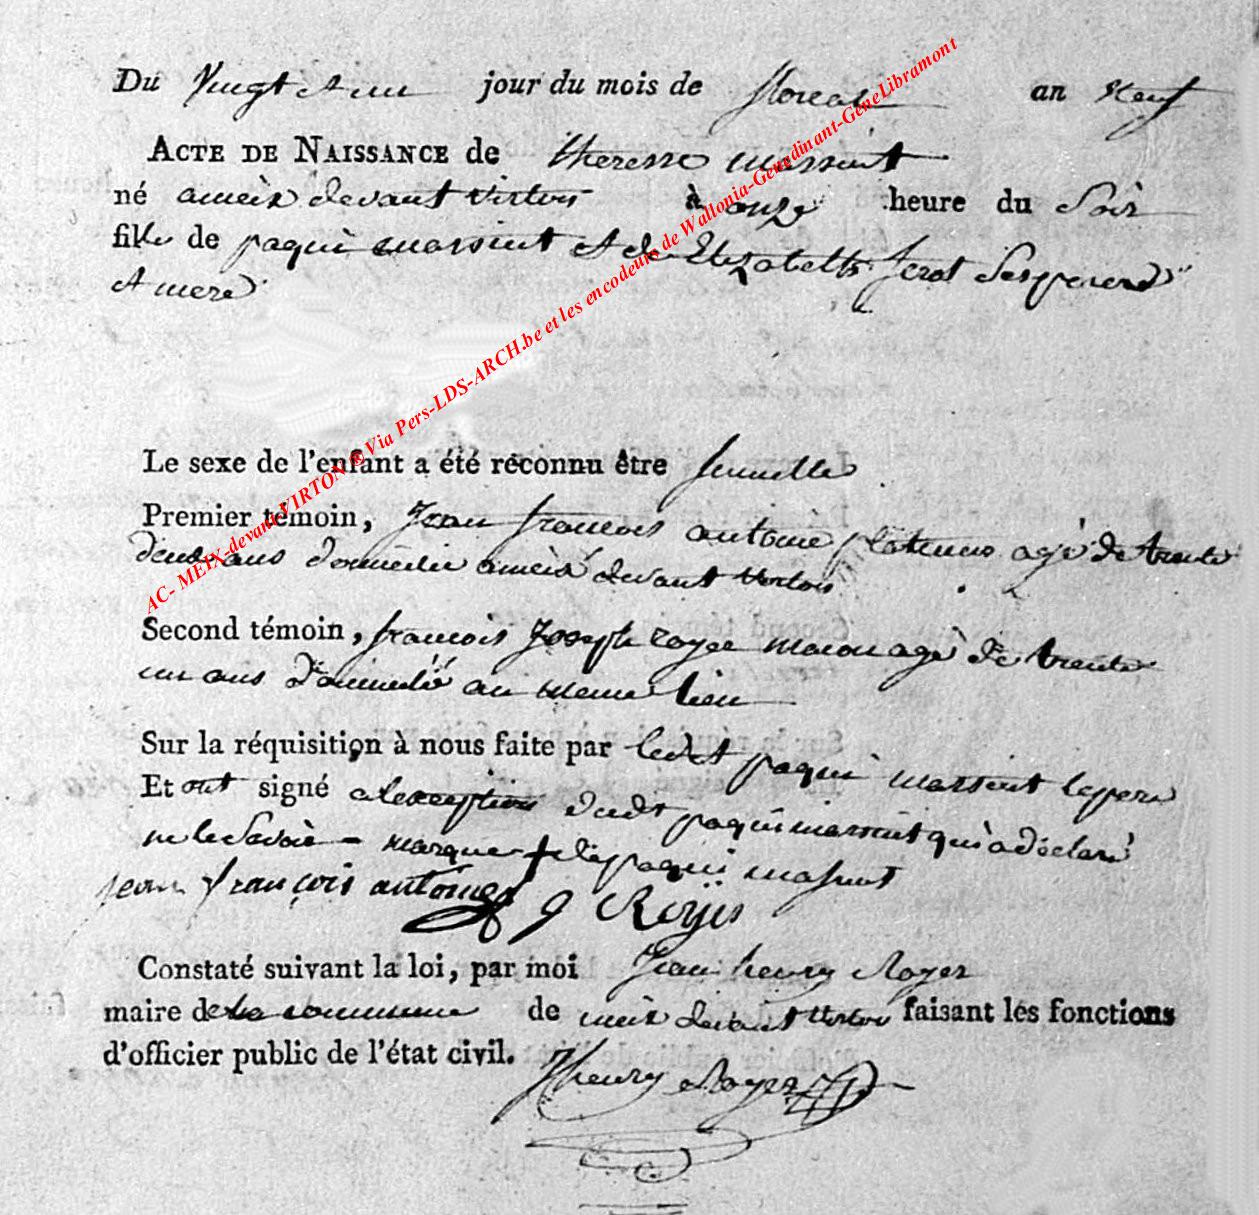 Du Vingt et un jour du mois de floreal an neuf
ACTE DE NAISSANCE de theresse massint
né a meix devant virton à onze heure du Soir
fille de paqui massint et de Elizabette Serot Ses pere
et mere
Le sexe de l'enfant a été reconnu être femelle
Premier témoin, Jean francois antoine agé de trente
deux ans domicilie a meix devant virton
Second témoin, francois Joseph royer macon agé de trente
un ans domicilié au meme lieu
Sur la réquisition à nous faite par ledit paqui massint le pere
Et ont signé a lexception dudt paqui massint qui a déclaré
ne le Savoir marque + de paqui massint
jean françois antoine
Constaté suivant la loi, par moi Jean henry Royer
maire de la commune de meix devant virton faisant les fonctions
d'officier public de l'état civil. J henry Royer
AC- MEIX-devant-VIRTON ® Via Pers-LDS-ARCH.be et les encodeurs de Wallonia-Genedinant-GeneLibramont